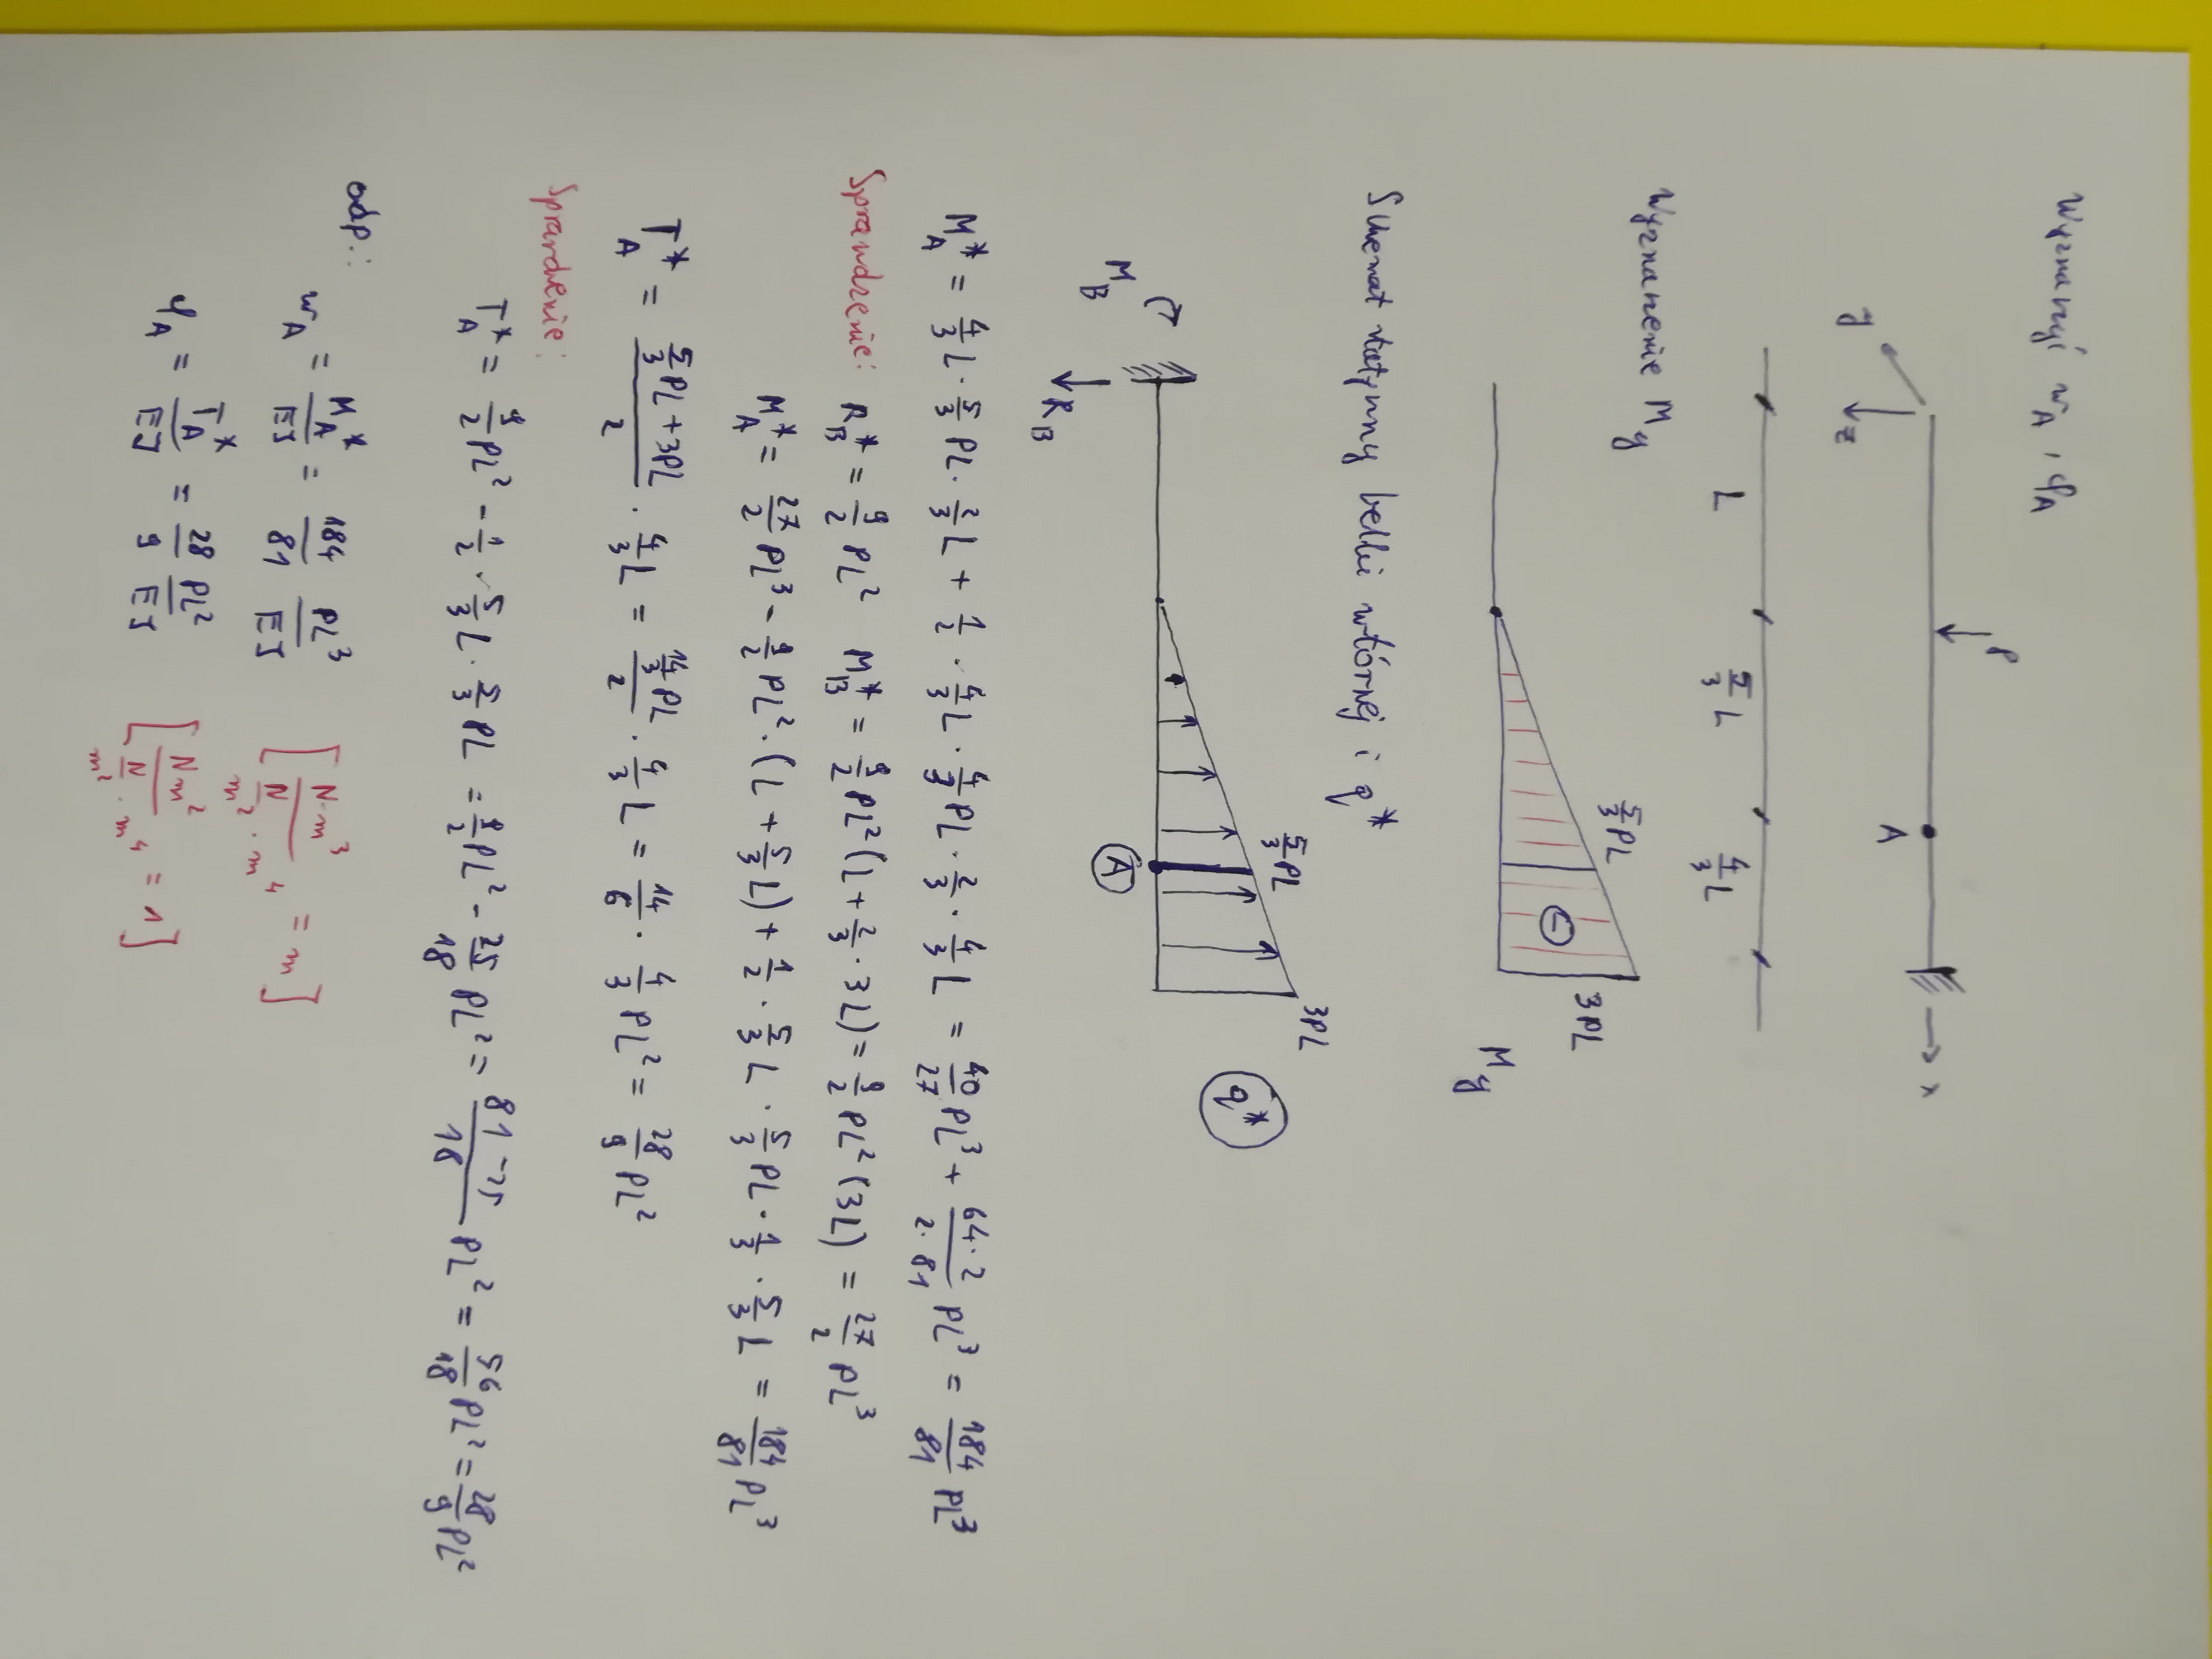 Wyznaczyć w_A, φ_A
P
A
→ x
y
z
L 5/3 L 4/3 L
Wyznaczenie M_y
5/3 PL
3PL
⊖
M_y
Schemat statyczny belki wtórnej i q*
5/3 PL
3PL
q*
M_B
A
R_B
M_A* = 4/3 L · 5/3 PL · 2/3 L + 1/2 · 4/3 L · 4/3 PL · 2/3 · 4/3 L = 40/27 PL³ + 64·2/2·81 PL³ = 184/81 PL³
Sprawdzenie: R_B* = 9/2 PL² M_B* = 9/2 PL² (L + 2/3 · 3L) = 9/2 PL² (3L) = 27/2 PL³
M_A* = 27/2 PL³ - 9/2 PL² · (L + 5/3 L) + 1/2 · 5/3 L · 5/3 PL · 1/3 · 5/3 L = 184/81 PL³
T_A* = (5/3 PL + 3PL)/2 · 4/3 L = (14/3 PL)/2 · 4/3 L = 14/6 · 4/3 PL² = 28/9 PL²
Sprawdzenie:
T_A* = 9/2 PL² - 1/2 · 5/3 L · 5/3 PL = 9/2 PL² - 25/18 PL² = (81-25)/18 PL² = 56/18 PL² = 28/9 PL²
odp.:
w_A = M_A*/EJ = 184/81 PL³/EJ [N·m³/(N/m² · m⁴) = m]
φ_A = T_A*/EJ = 28/9 PL²/EJ [Nm²/(N/m² · m⁴) = 1]